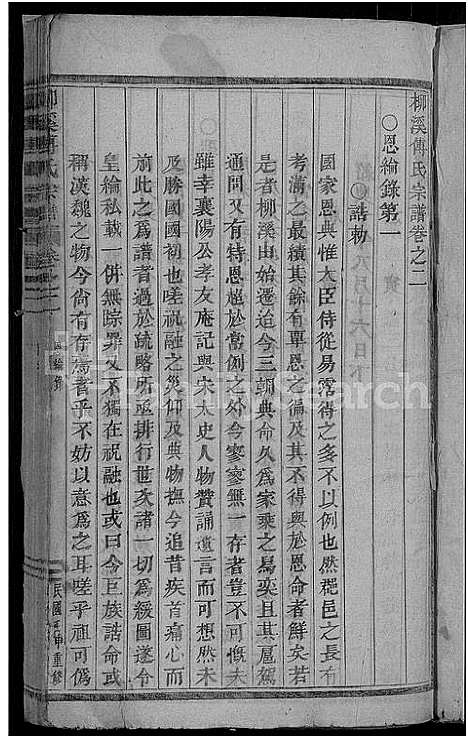 柳溪傅氏宗譜卷之二
〇恩綸錄第一
〇誥勅
國家恩典惟大臣侍從易霑得之多不以例也然郡邑之長有
考滿之最績其餘有覃恩之徧及其不得與於恩命者鮮矣若
是者柳溪由始遷迄今三朝典命久爲家乘之烏奕且其扈駕
通問又有特恩超於常例之外今寥寥無一存者豈不可慨夫
雖幸襄陽公孝友庵記與宋太史人物贊誦遺言而可想然未
及勝國國初也嗟祝融之災仰及典物撫今追昔疾首痛心而
前此之爲譜者過於疏略所亟排行世次諸一切爲綴圖遂令
皇綸私載一併無踪罪又不獨在祝融也或曰今巨族誥命或
稱漢魏之物今尙有存焉者乎不妨以意爲之耳嗟乎祖可僞
柳溪傅氏宗譜 卷之二
恩綸錄
民國 申重修